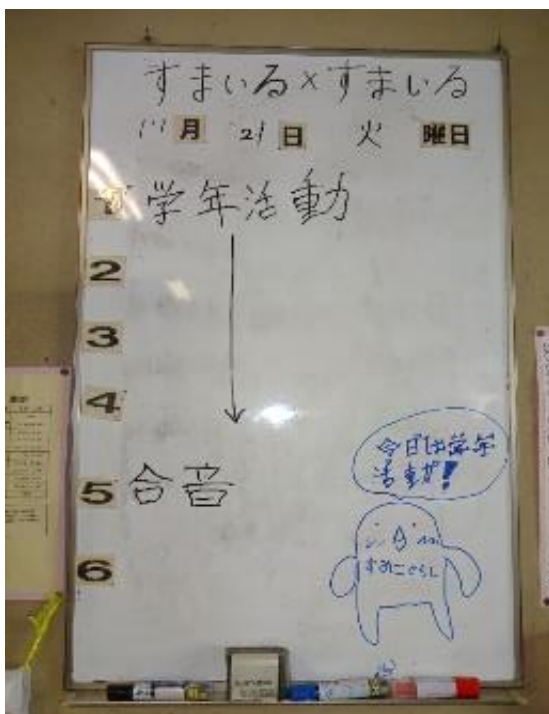 すまいる×すまいる
11月 21日 火 曜日
1 学年活動
2
3
4
5 合音
6
今日は学年
活動だ!